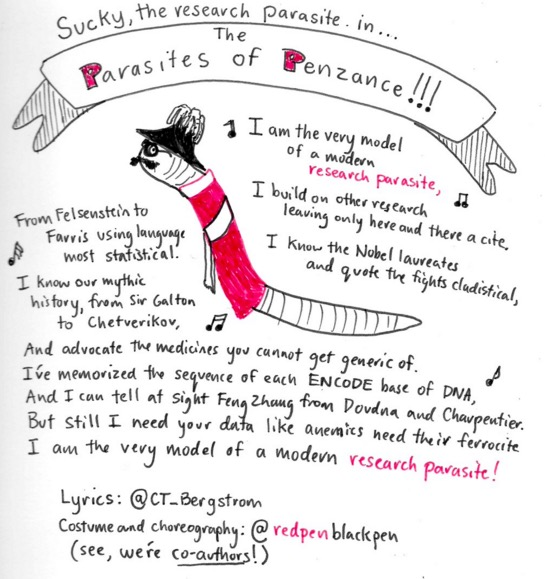 Sucky, the research parasite. in...
The
Parasites of Penzance!!!
I am the very model
of a modern
research parasite,
I build on other research
leaving only here and there a cite.
I know the Nobel laureates
and quote the fights cladistical,
From Felsenstein to
Farris using language
most statistical.
I know our mythic
history, from Sir Galton
to Chetverikov,
And advocate the medicines you cannot get generic of.
I've memorized the sequence of each ENCODE base of DNA,
And I can tell at sight Feng Zhang from Doudna and Charpentier.
But still I need your data like anemics need their ferrocite
I am the very model of a modern research parasite!
Lyrics: @CT_Bergstrom
Costume and choreography: @redpenblackpen
(see, we're co-authors!)